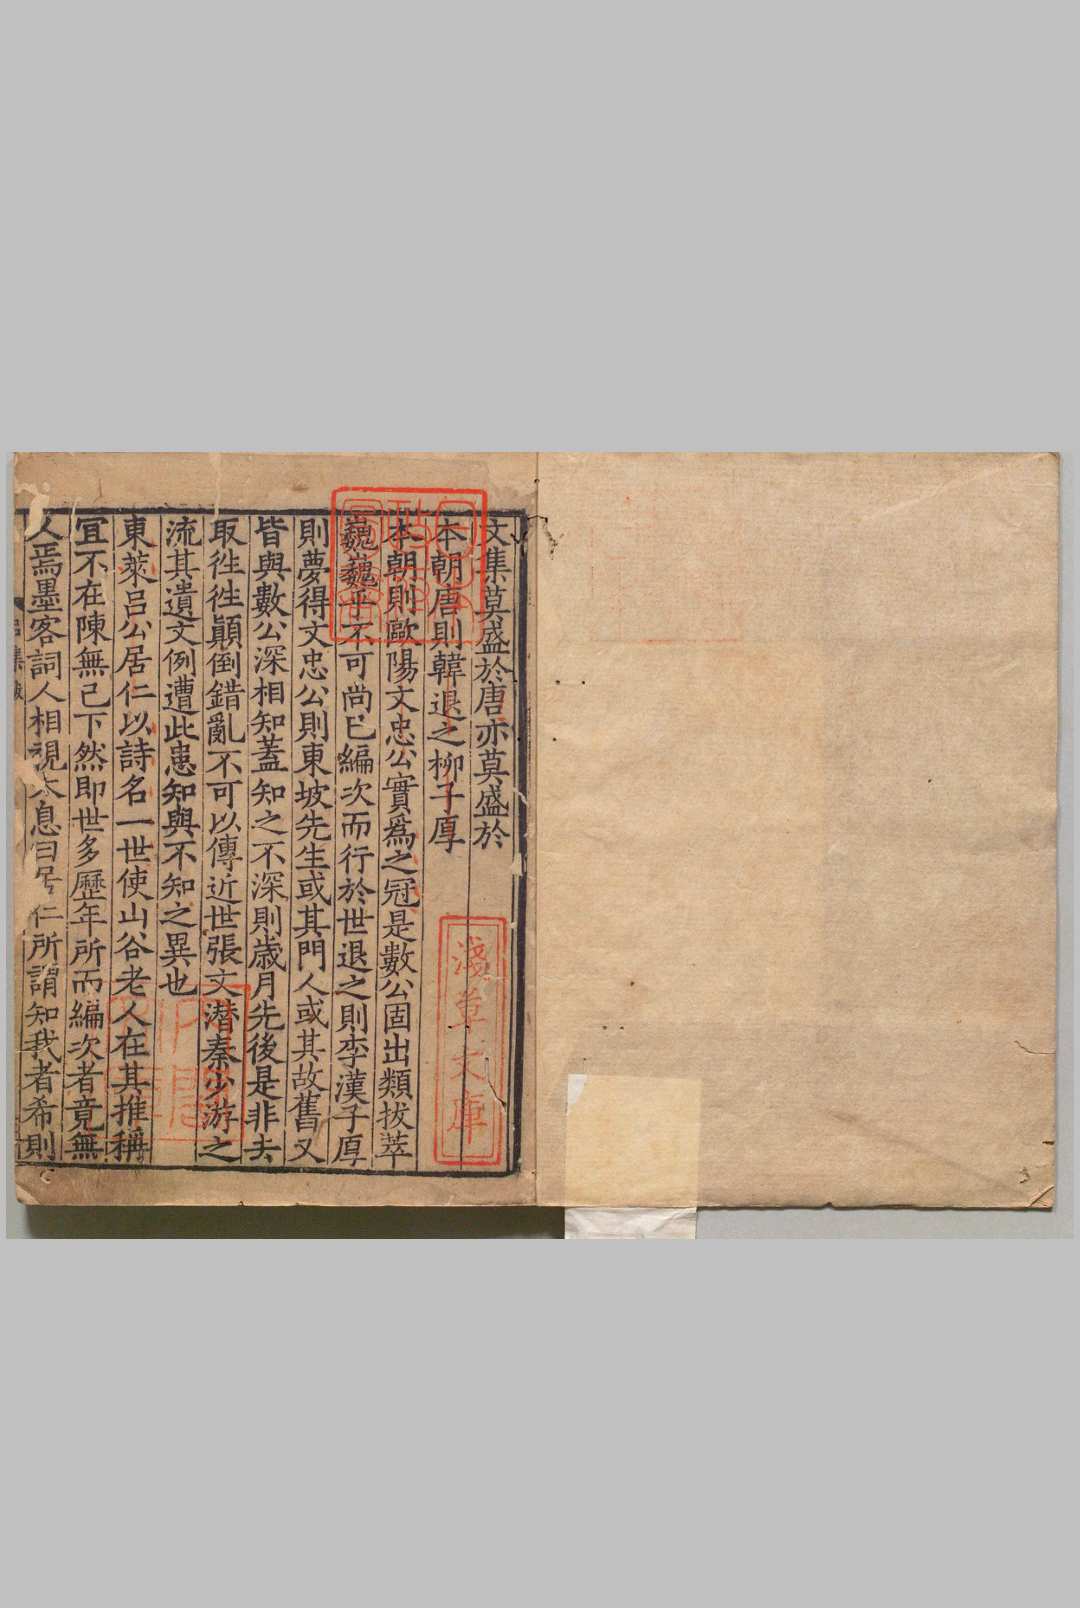 文集莫盛於唐亦莫盛於
本朝唐則韓退之柳子厚
本朝則歐陽文忠公實爲之冠是數公固出類拔萃
巍巍乎不可尚已編次而行於世退之則李漢子厚
則夢得文忠公則東坡先生或其門人或其故舊又
皆與數公深相知蓋知之不深則歲月先後是非去
取徃徃顚倒錯亂不可以傳近世張文潛秦少游之
流其遺文例遭此患知與不知之異也
東萊吕公居仁以詩名一世使山谷老人在其推稱
宜不在陳無己下然即世多歷年所而編次者竟無
人焉墨客詞人相視太息曰居仁所謂知我者希則
淺草文庫